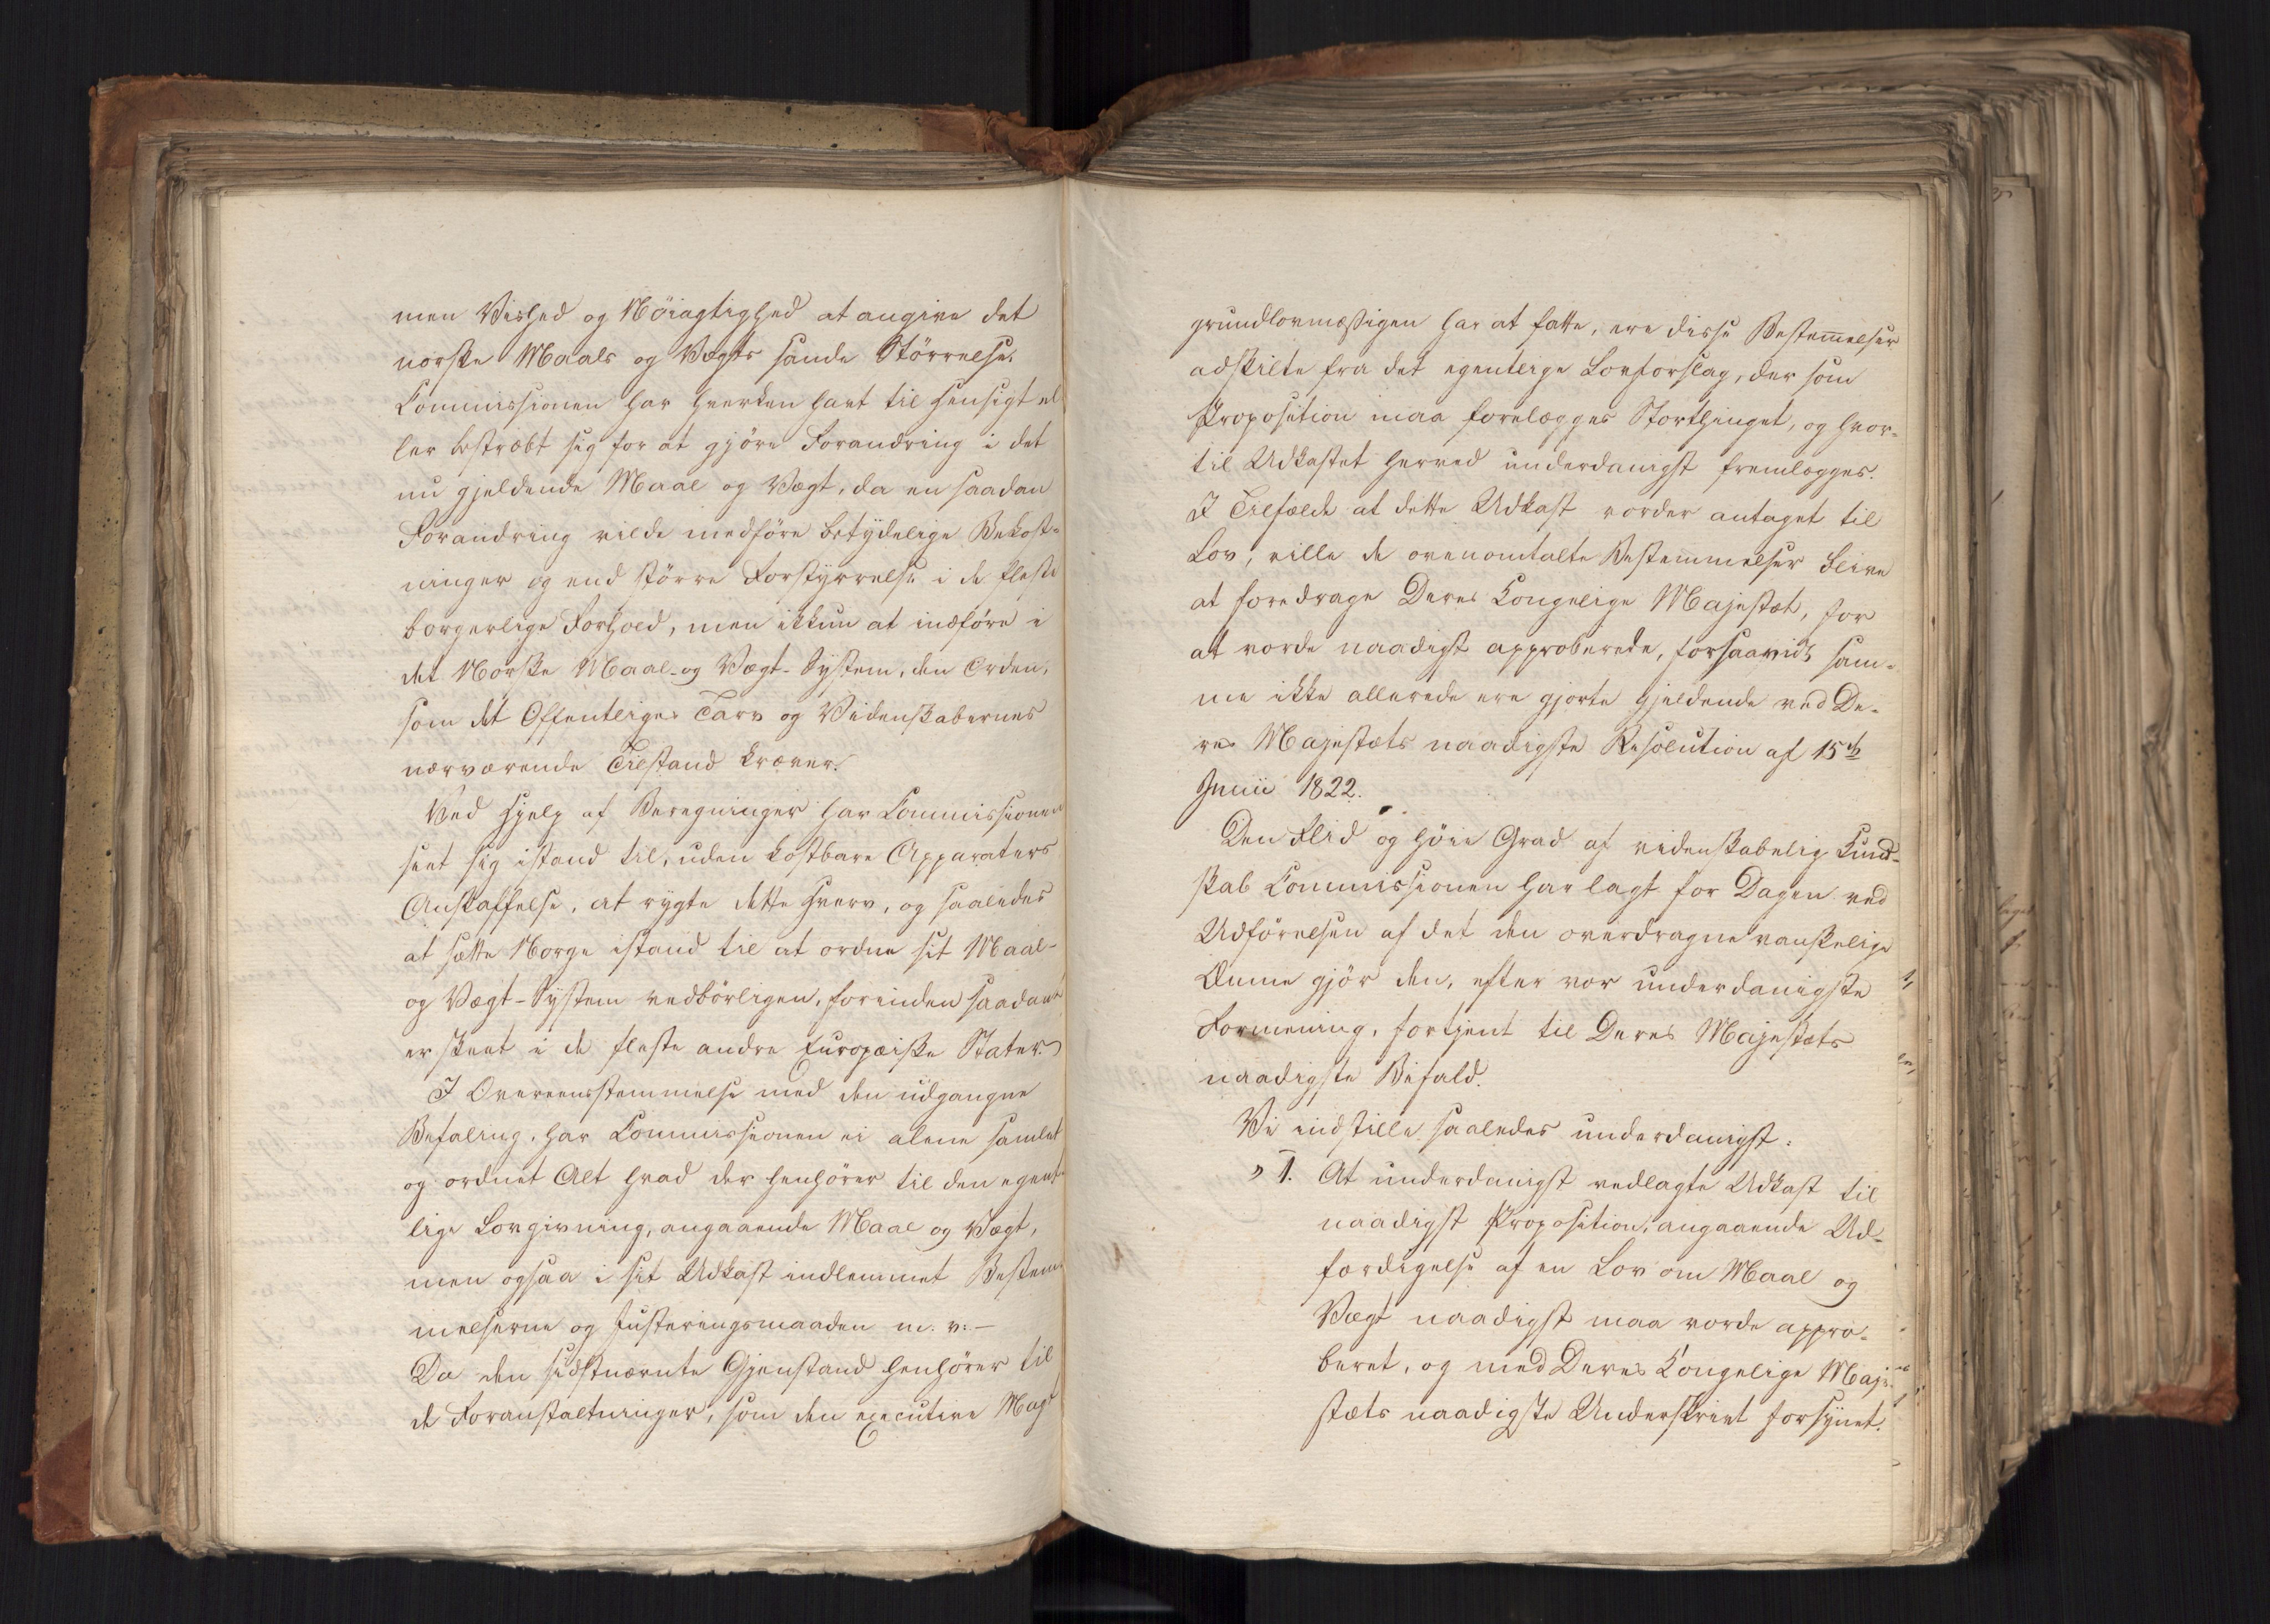 men Vished og Nöiagtighed at angive det
norske Maals og Vægts sande Störrelse.
Commissionen har hverken havt til Hensigt el
ler bestræbt sig for at gjöre Forandring i det
nu gjeldende Maal og Vægt, da en saadan
Forandring vilde medföre betydelige Bekost-
ninger og end större Forstyrrelse i de fleste
borgerlige Forhold, men ikkun at indföre i
det Norske Maal- og Vægt-System, den Orden,
som det Offentliges Tarv og Videnskabernes
nærværende Tilstand kræver.
Ved Hjelp af Beregninger har Commissionen
seet sig istand til, uden kostbare Apparaters
Anskaffelse, at rygte dette Hverv, og saaledes
at sætte Norge istand til at ordne sit Maal-
og Vægt-System vedbörligen, forinden saadant
er skeet i de fleste andre Europæiske Stater.
I Overeensstemmelse med den udgangne
Befaling, har Commissionen ei alene samlet
og ordnet Alt hvad der henhörer til den egent
lige Lovgivning, angaaende Maal og Vægt,
men ogsaa i sit Udkast indlemmet Bestem
melserne og Justeringsmaaden m. v. –
Da den sidstnævnte Gjenstand henhörer til
de Foranstaltninger, som den executive Magt
grundlovmæssigen har at fatte, ere disse Bestemmelser
adskilte fra det egentlige Lovforslag, der som
Proposition maa forelægges Storthinget, og hvor-
til Udkastet herved underdanigst fremlægges.
I Tilfælde at dette Udkast vorder antaget til
Lov, ville de ovenomtalte Bestemmelser blive
at foredrage Deres Kongelige Majestæt, for
at vorde naadigst approberede, forsaavidt sam-
me ikke allerede ere gjorte gjeldende ved De-
res Majestæts naadigste Resolution af 15de
Junii 1822.
Den Flid og höie Grad af videnskabelig Kund-
skab Commissionen har lagt for Dagen ved
Udförelsen af det den overdragne vanskelige
Æmne gjör den, efter vor underdanigste
Formening, fortjent til Deres Majestæts
naadigste Bifald.
Vi indstille saaledes underdanigst:
" 1. At underdanigst vedlagte Udkast til
naadigst Proposition, angaaende Ud-
færdigelse af en Lov om Maal og
Vægt naadigst maa vorde appro-
beret, og med Deres Kongelige Maje-
stæts naadigste Underskrivt forsynet.